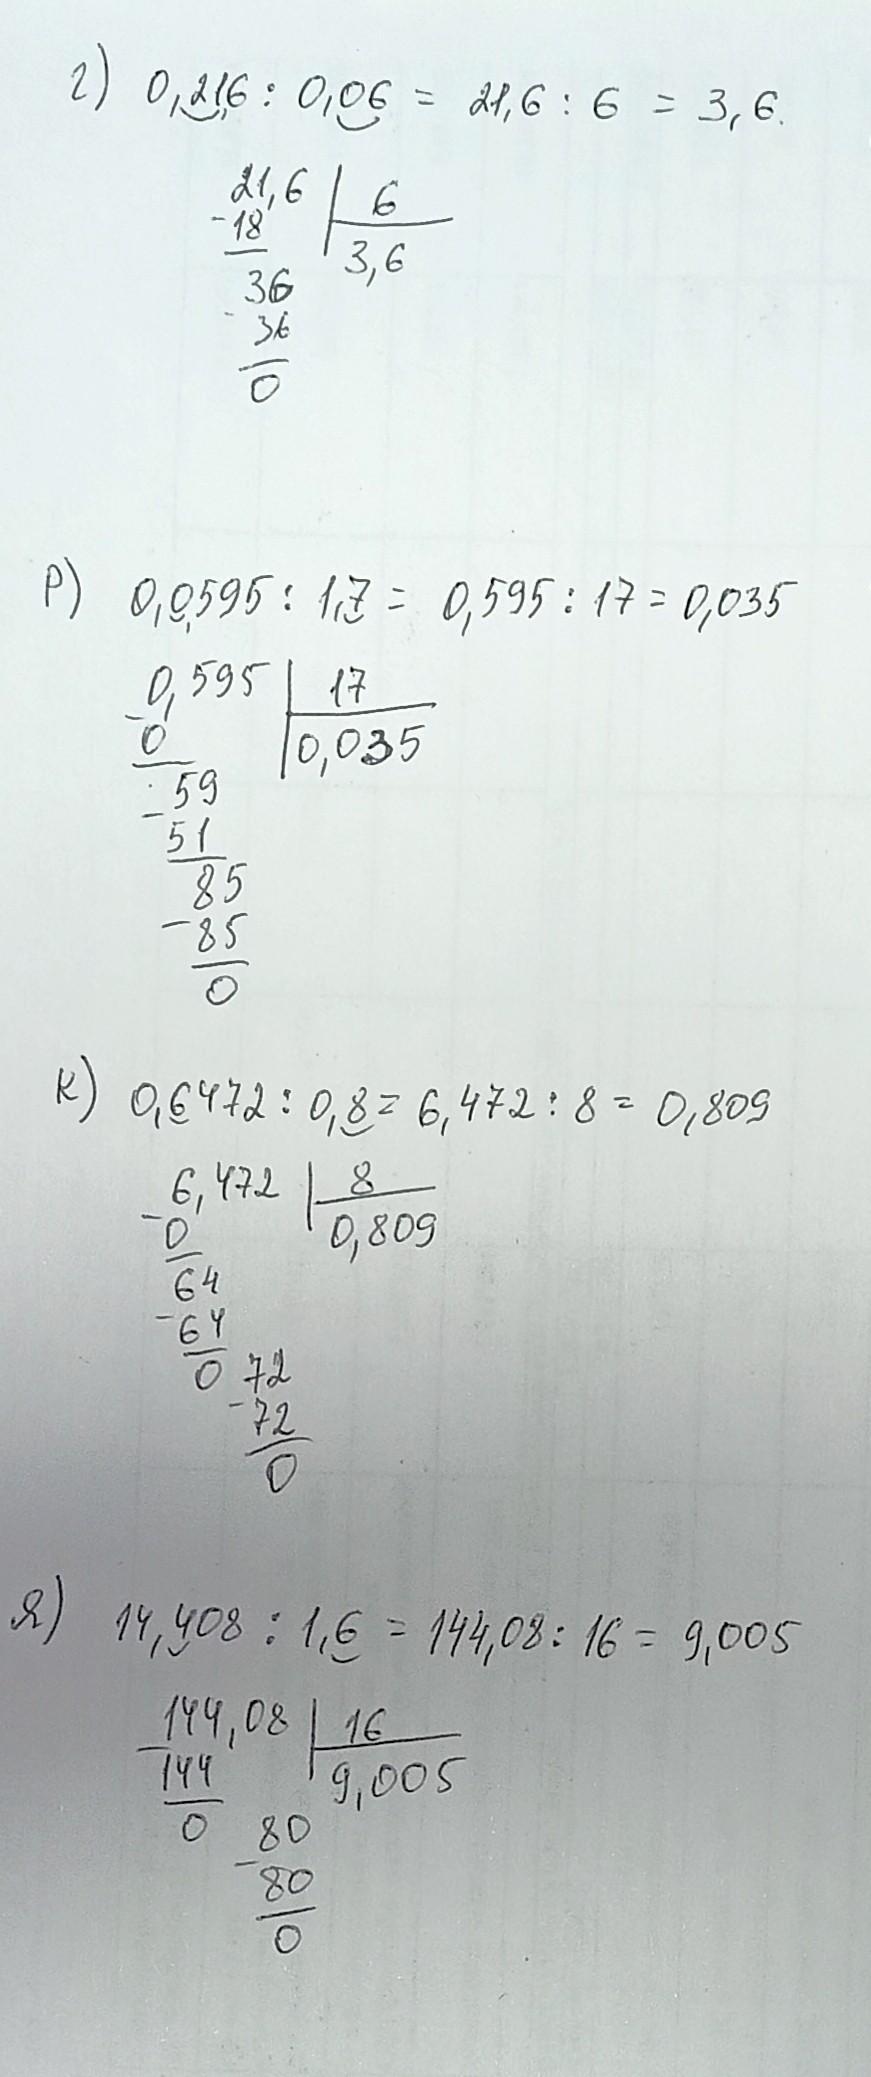 г) 0,216 : 0,06 = 21,6 : 6 = 3,6.
21,6 | 6
- 18 | 3,6
36
- 36
0
р) 0,0595 : 1,7 = 0,595 : 17 = 0,035
- 0,595 | 17
0 | 0,035
- 59
51
85
- 85
0
к) 0,6472 : 0,8 = 6,472 : 8 = 0,809
- 6,472 | 8
0 | 0,809
64
- 64
0 72
- 72
0
я) 14,408 : 1,6 = 144,08 : 16 = 9,005
- 144,08 | 16
144 | 9,005
0 80
- 80
0